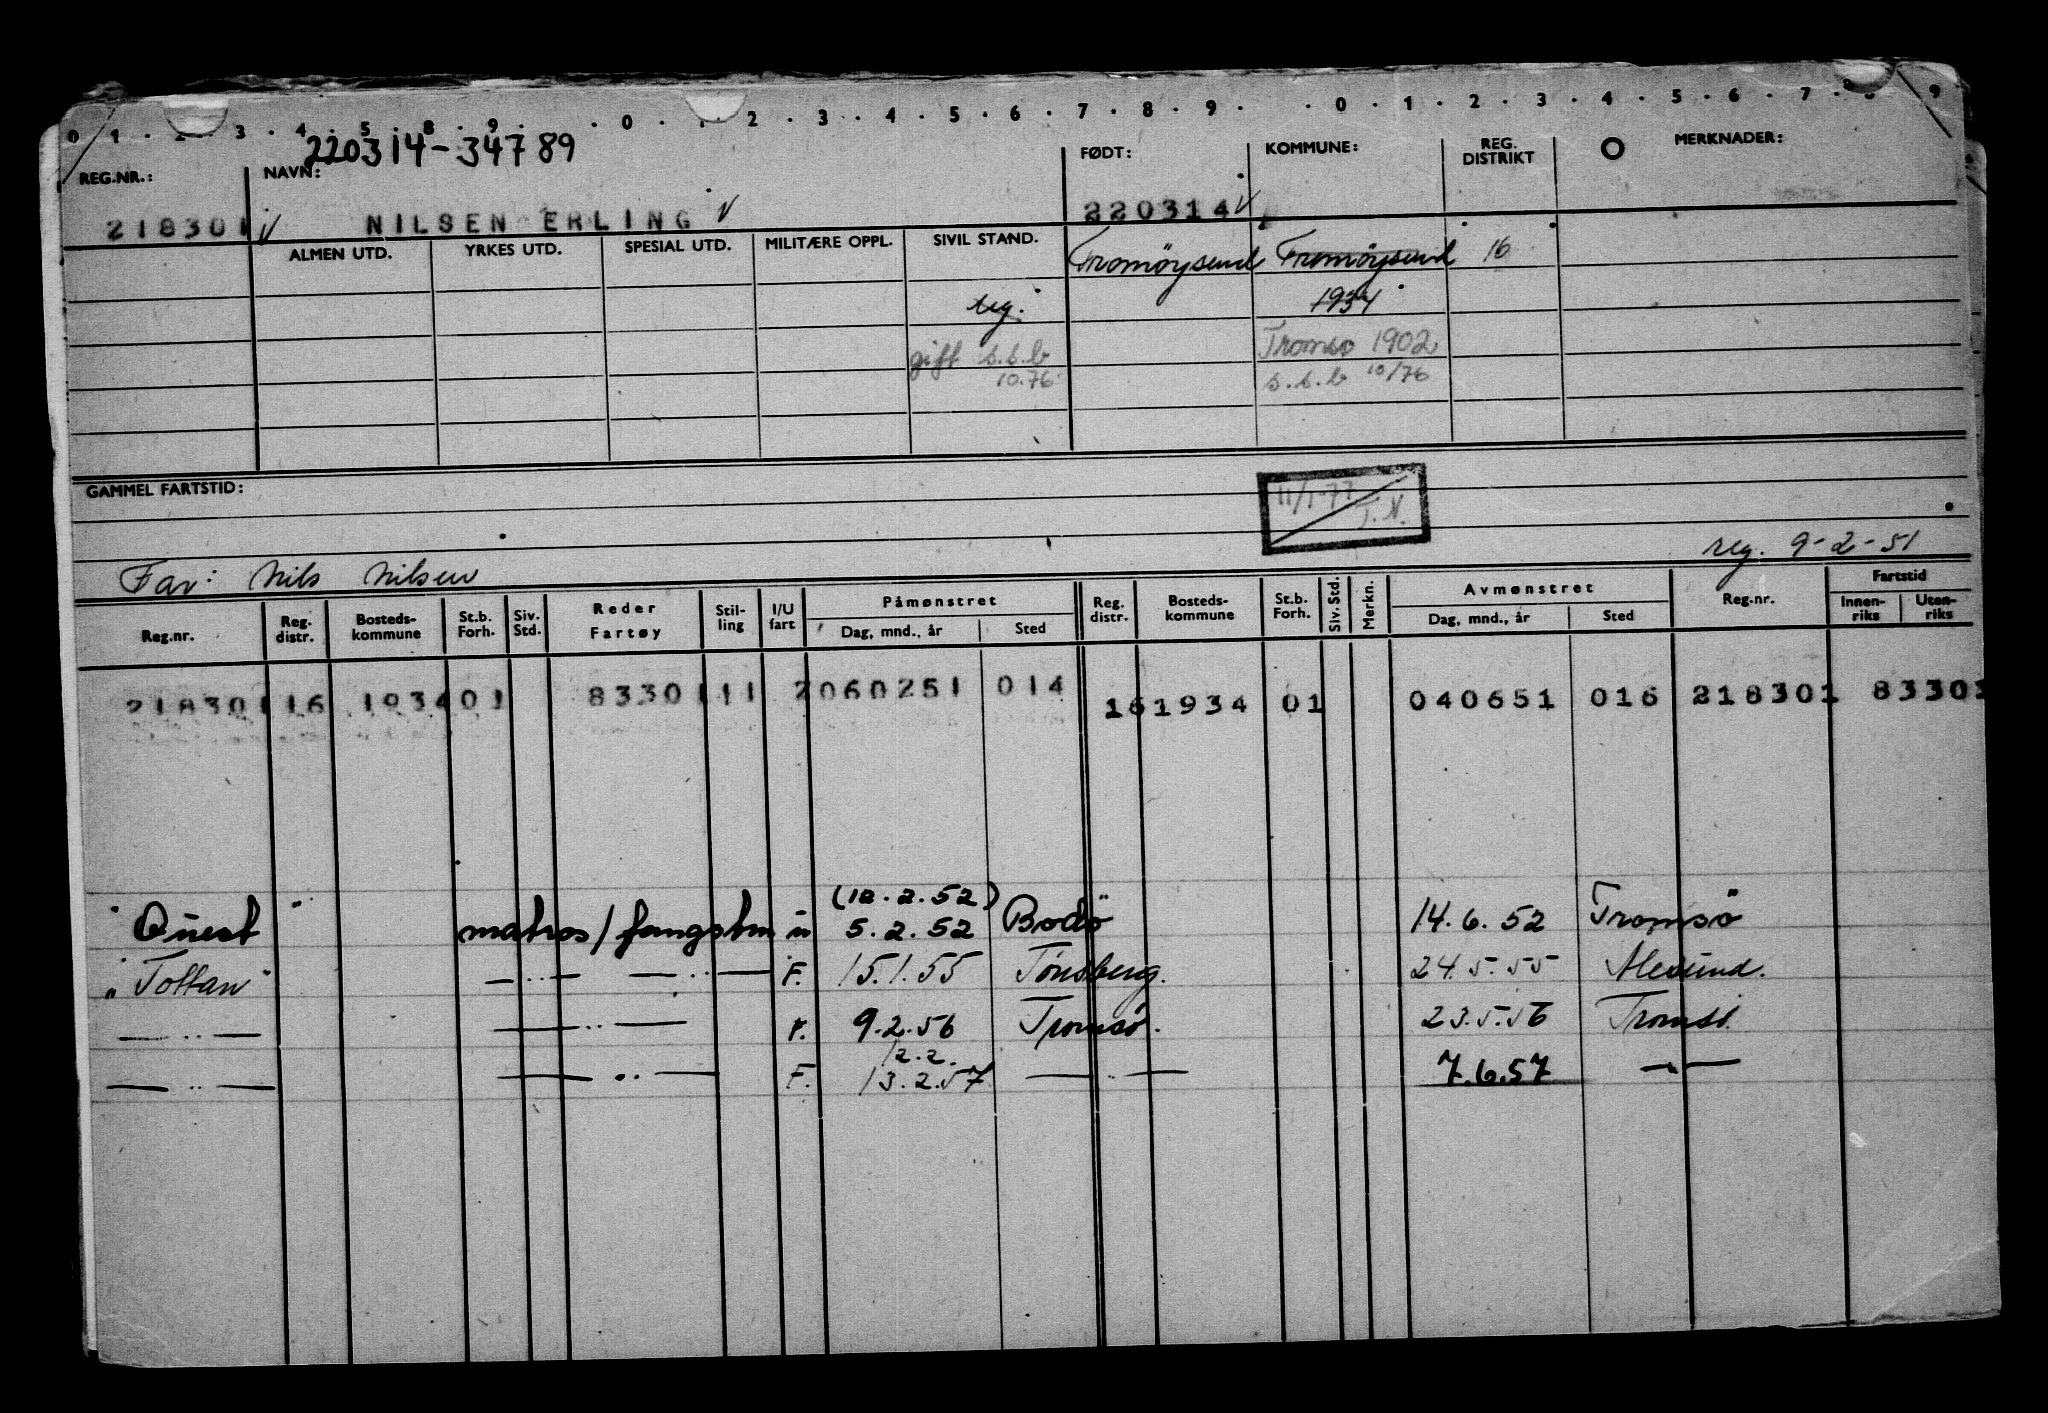 0 1 · 2 · 3 · 4 · 5 · 8 · 9 · · 0 · · 1 · 2 · 3 · 4 · 5 · 6 · 7 · 8 · 9 · · 0 · 1 · 2 · 3 · 4 · 5 · 6 · 7 · 8 · 9
220314-34789
REG.NR.: NAVN: FØDT: KOMMUNE: REG. DISTRIKT MERKNADER:
218301 V NILSEN ERLING V 220314 V
ALMEN UTD. YRKES UTD. SPESIAL UTD. MILITÆRE OPPL. SIVIL STAND. Tromøysund Tromøysund 16
ug. 1934
gift s.s.b Tromsø 1902
10.76 s.s.b 10/76
GAMMEL FARTSTID: 11/1-77
T.N.
Far: Nils Nilsen reg. 9-2-51
Reg.nr. Reg. distr. Bosteds-kommune St.b. Forh. Siv. Std. Reder Fartøy Stil-ling I/U fart Påmønstret Dag, mnd., år Sted Reg. distr. Bosteds-kommune St.b. Forh. Siv. Std. Merkn. Avmønstret Dag, mnd., år Sted Reg.nr. Fartstid Innen-riks Uten-riks
218301 16 1934 01 8330 111 2 060251 014 16 1934 01 040651 016 218301 83301
(12.2.52)
"Quest" matros/fangstm u 5.2.52 Bodö 14.6.52 Tromsö
"Tottan" — ·· — — ·· — F. 15.1.55 Tønsberg. 24.5.55 Ålesund.
— ·· — — ·· — F. 9.2.56 Tromsø. 23.5.56 Tromsø.
12.2.
— ·· — — ·· — F. 13.2.57 — ·· — 7.6.57 — ·· —